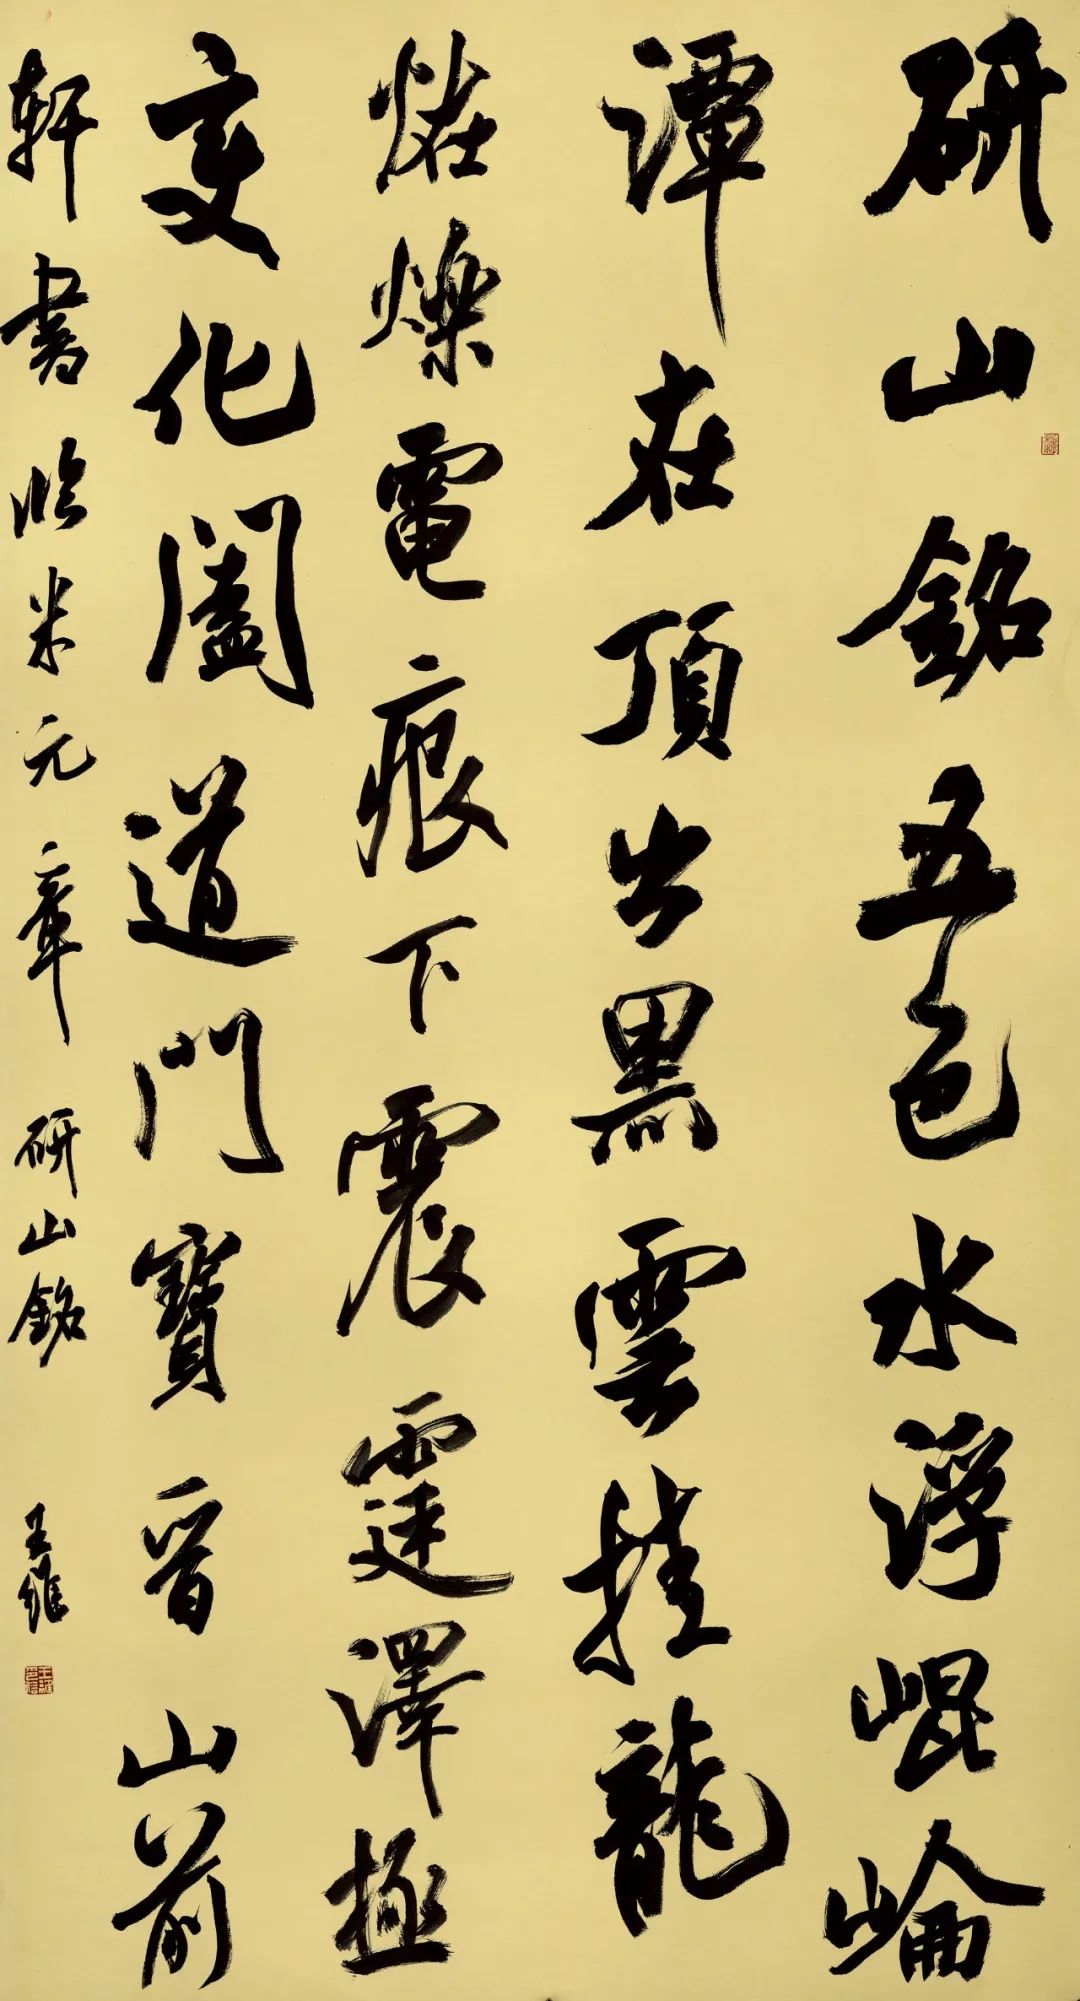 研山銘五色水浮崐崘
潭在頂出黑雲挂龍
恠爍電痕下震霆澤極
變化闔道門寶晉山前
軒書臨米元章研山銘王維